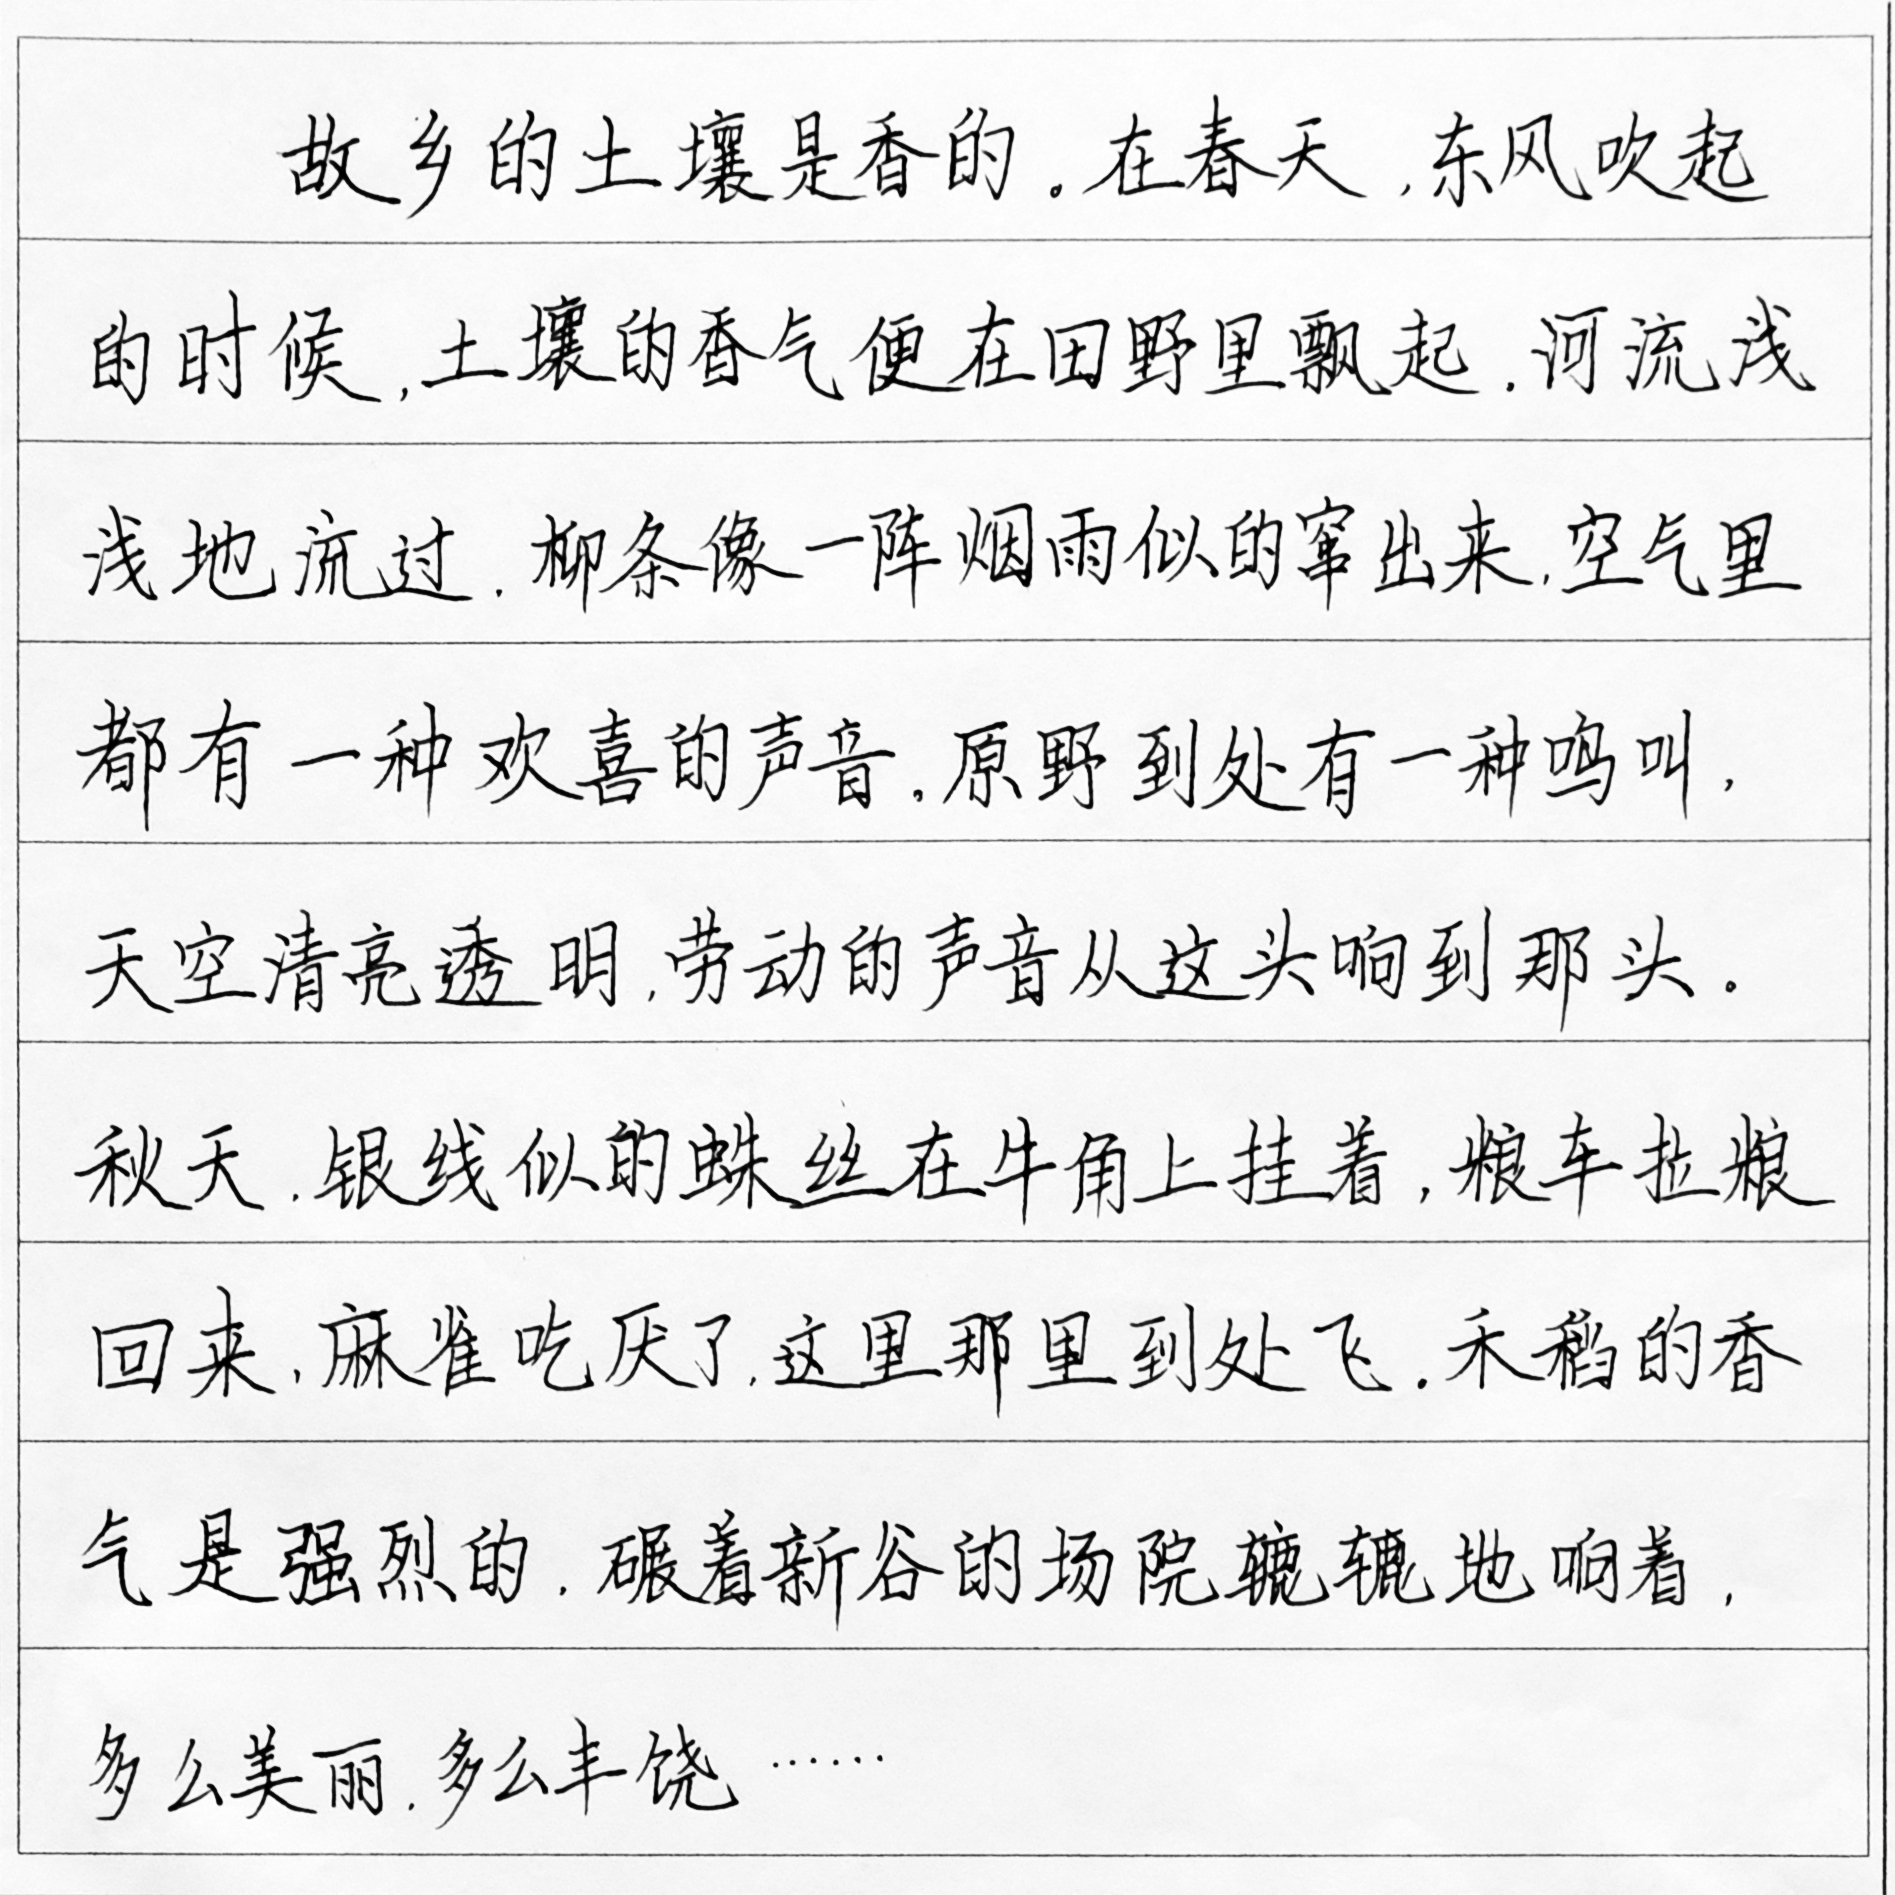 故乡的土壤是香的。在春天，东风吹起
的时候，土壤的香气便在田野里飘起。河流浅
浅地流过，柳条像一阵烟雨似的窜出来，空气里
都有一种欢喜的声音。原野到处有一种鸣叫，
天空清亮透明，劳动的声音从这头响到那头。
秋天，银线似的蛛丝在牛角上挂着，粮车拉粮
回来，麻雀吃厌了，这里那里到处飞。禾稻的香
气是强烈的，碾着新谷的场院辘辘地响着，
多么美丽，多么丰饶……